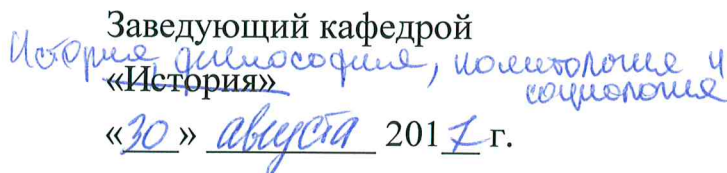 Заведующий кафедрой
История, философия, политология и
социология
«История»
«30» августа 2017 г.